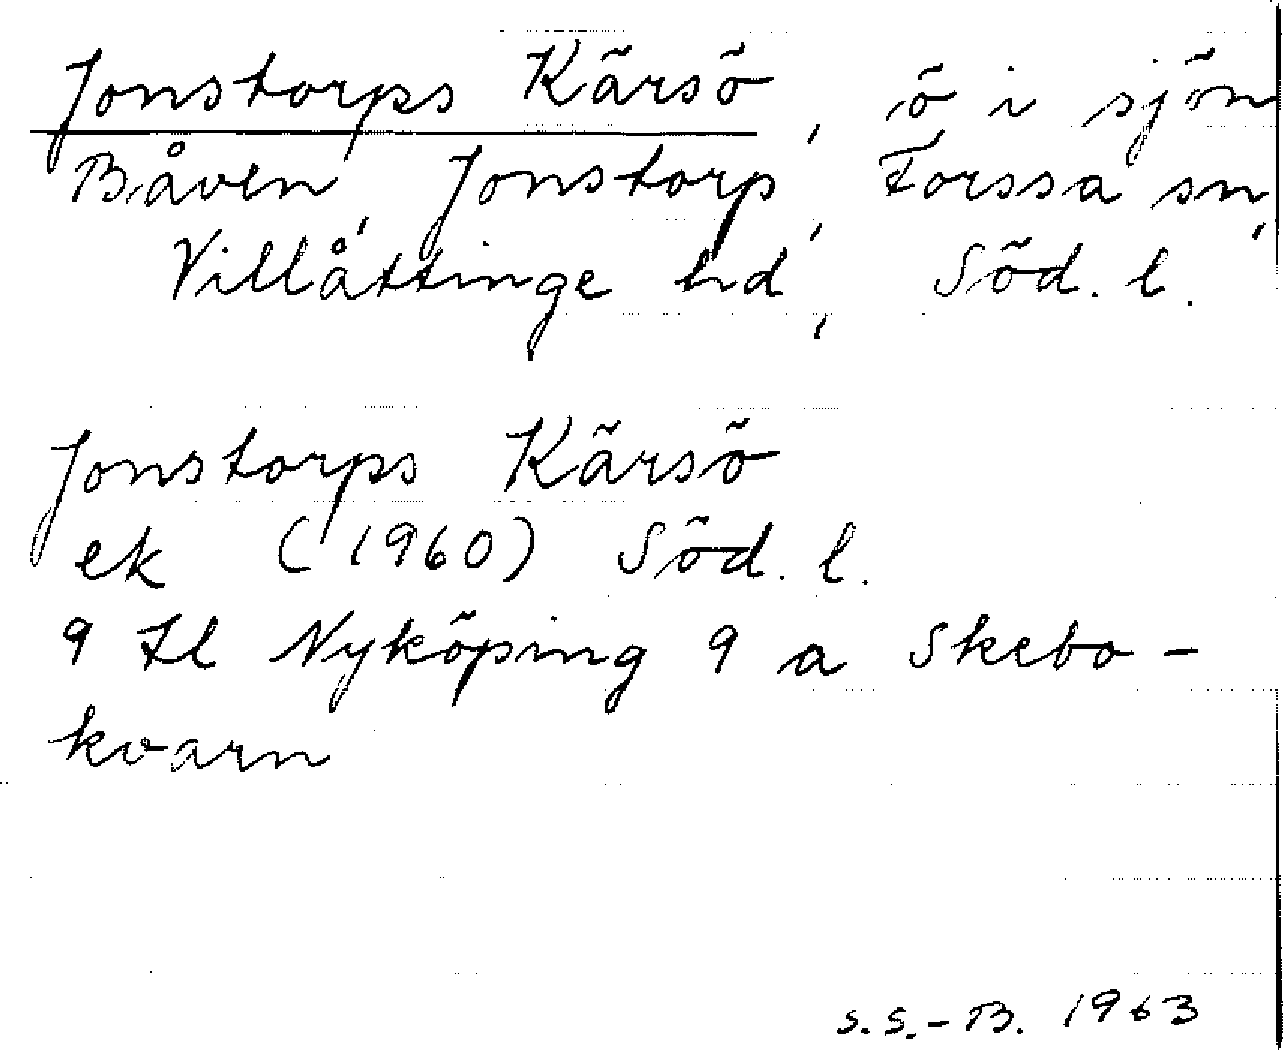 Jonstorps Kärsö, ö i sjön
Båven, Jonstorp, Forssa sn,
Villåttinge hd, Söd. l.
Jonstorps Kärsö
ek (1960) Söd. l.
9 H l Nyköping 9 a Skebo-
kvarn
S.S.-B. 1963